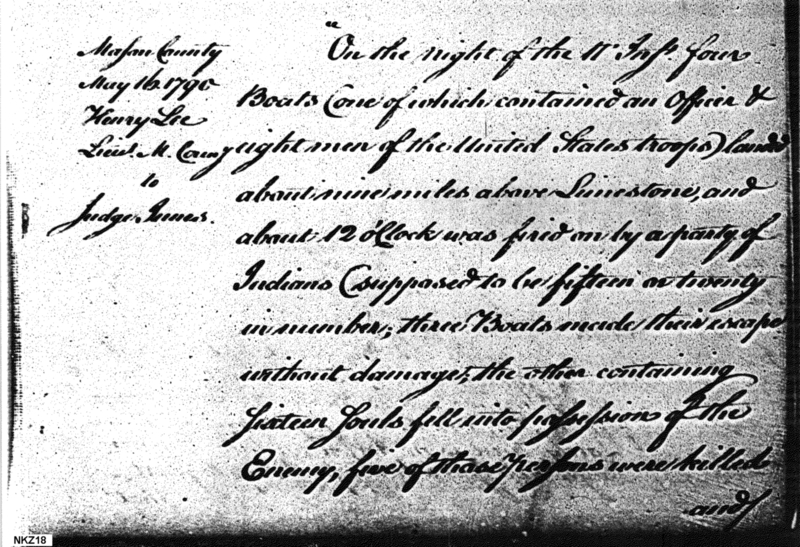 Mason County
May 16. 1790
Henry Lee
Lieut. M. County
to
Judge Innes.
"On the night of the 11th Inst. four
Boats (one of which contained an Officer &
eight men of the United States troops) landed
about nine miles above Limestone, and
about 12 o'Clock was fired on by a party of
Indians (supposed to be fifteen or twenty
in number; three Boats made their escape
without damage, the other containing
Sixteen Souls fell into possession of the
Enemy, five of those persons were killed
and/
NKZ18